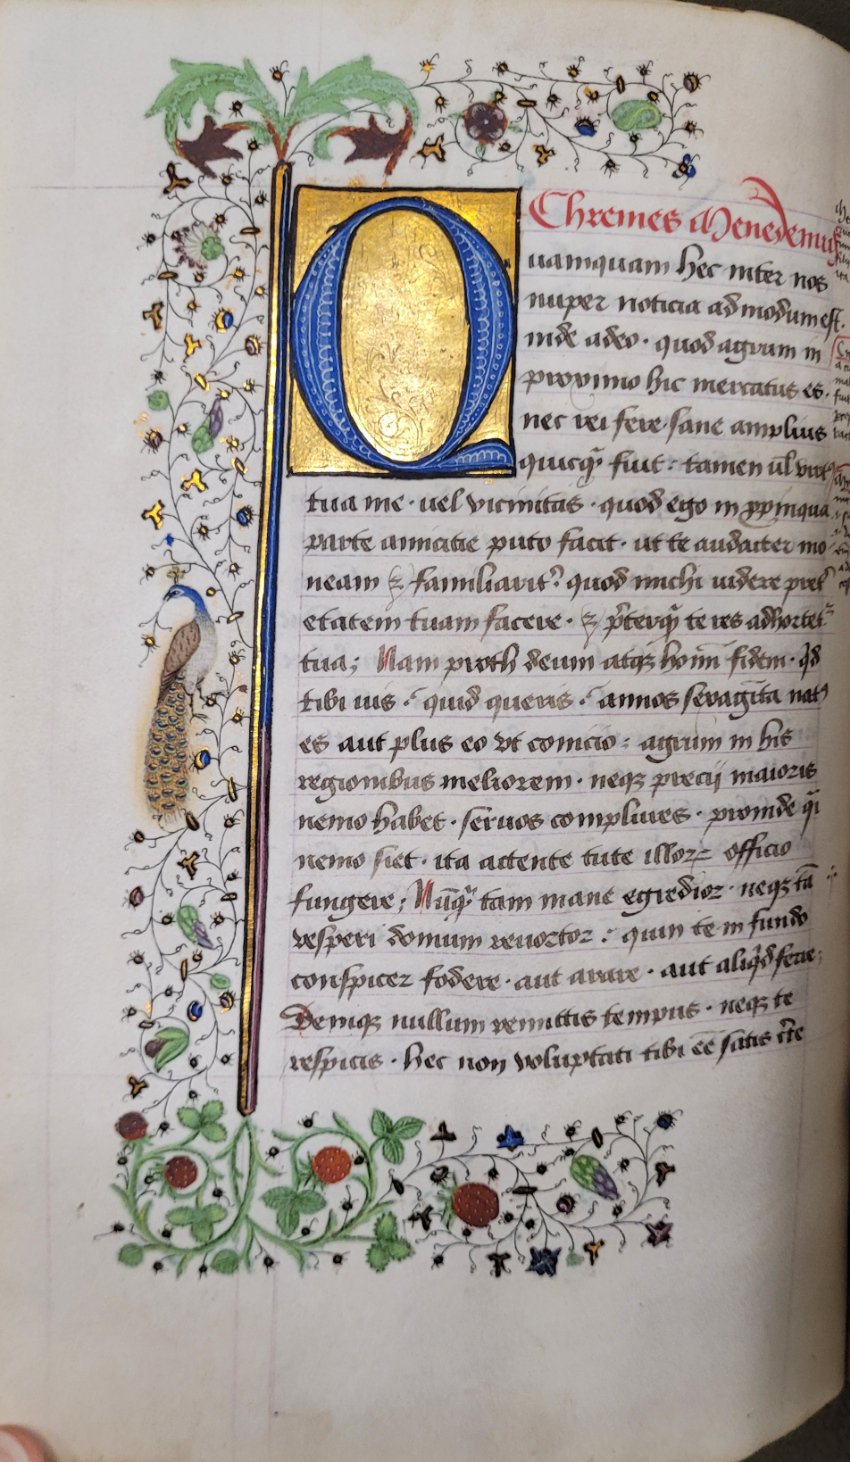 Chremes Menedemus
Quamquam hec inter nos
nuper noticia admodum est.
inde adeo · quod agrum in
proximo hic mercatus es ·
nec rei fere sane amplius
quicq̄ fuit : tamen ūl virt⁹
tua me · uel vicinitas · quod ego in ꝓpinqua
parte amicicie puto facit · ut te audacter mo
neam ⁊ familiarit᷑ quod michi uidere pret᷑
etatem tuam facere · ⁊ p̄terq̄ te res adhortet᷑
tua ; Nam proth deum atqꝫ homī fidem · qd̄
tibi uis · quid queris · annos sexagīta nat⁹
es aut plus eo vt conicio : agrum in his
regionibus meliorem · neqꝫ precij maioris
nemo habet · seruos complures · proinde q̄i
nemo siet · ita attente tute illoꝝ officio
fungere ; Nūq̄ tam mane egredior · neqꝫ tā
vesperi domum reuortor : quin te in fundo
conspicer fodere · aut arare · aut aliq̇d ferre ;
Deniqꝫ nullum remittis tempus · neqꝫ te
respicis · hec non voluptati tibi eē satis c̄te